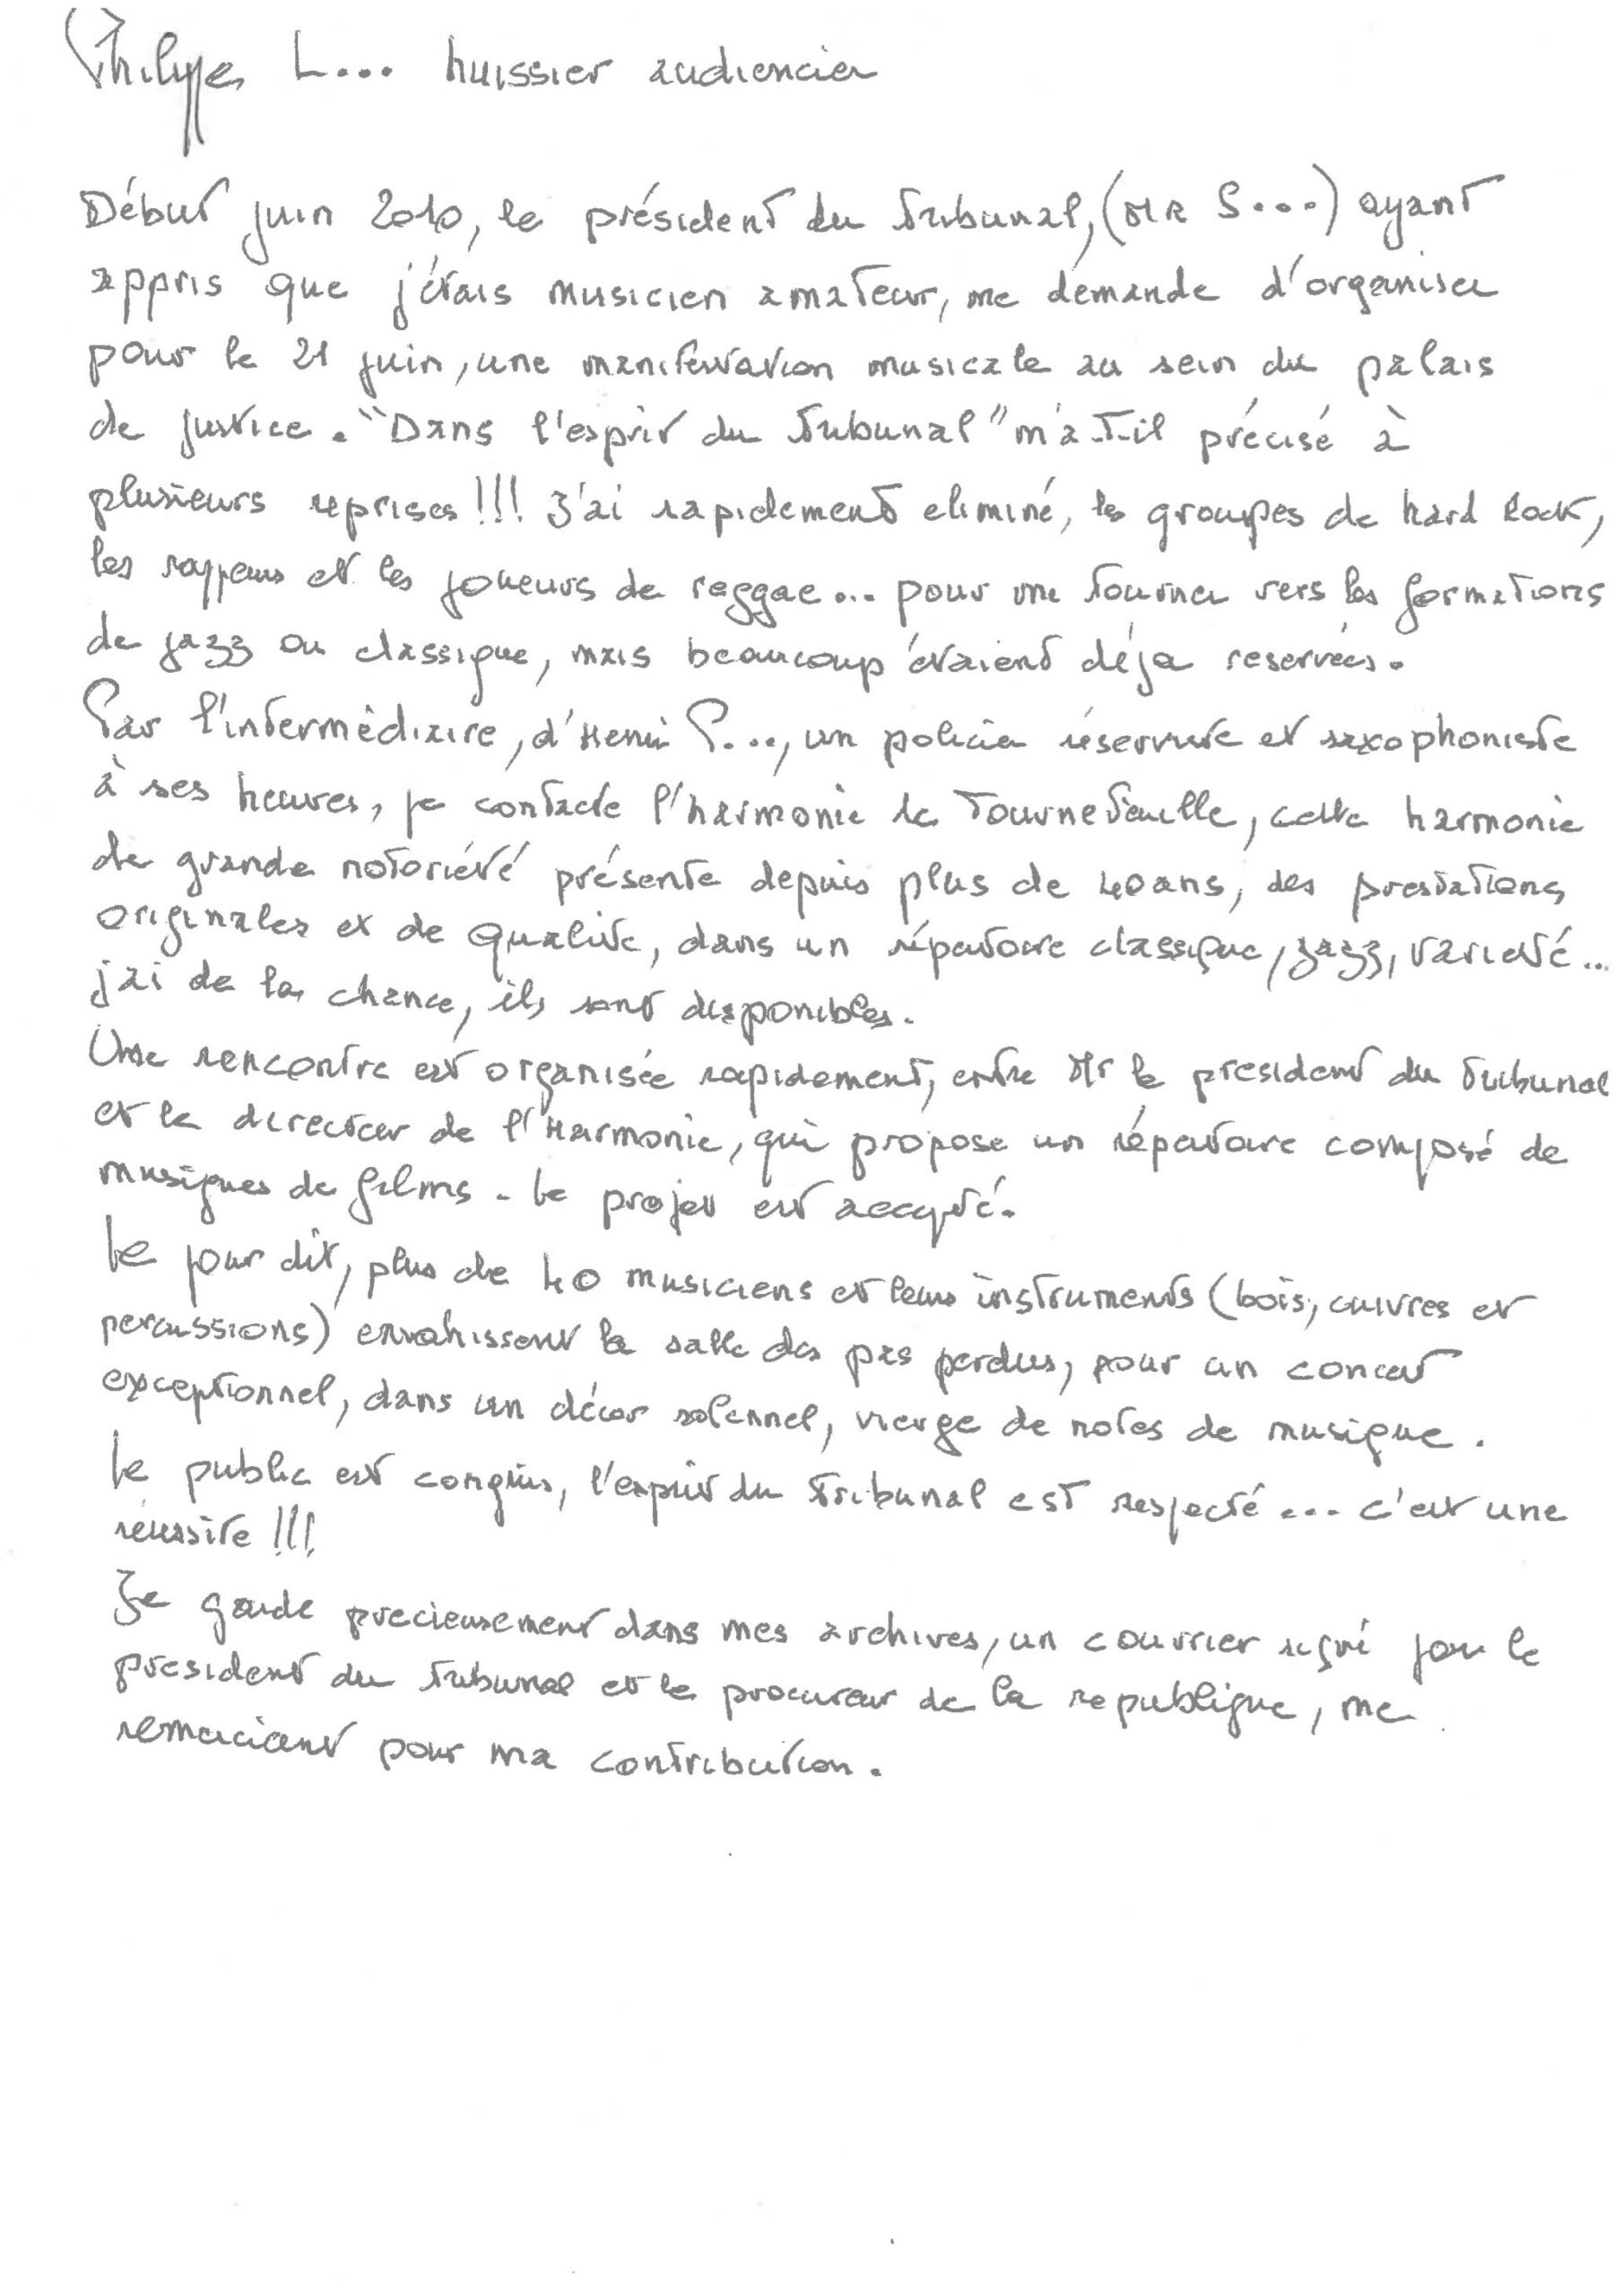 Philippe L... huissier audiencier
Début juin 2010, le président du Tribunal, (MR S....) ayant
appris que j'étais musicien amateur, me demande d'organiser
pour le 21 juin, une manifestation musicale au sein du palais
de justice. "Dans l'esprit du Tribunal" m'a-t-il précisé à
plusieurs reprises !!! J'ai rapidement eliminé, les groupes de hard Rock,
les rappeurs et les joueurs de reggae... pour me tourner vers les formations
de jazz ou classique, mais beaucoup étaient déja reservées.
Par l'intermédiaire, d'Henri P..., un policier réserviste et saxophoniste
à ses heures, je contacte l'harmonie de Tournefeuille, cette harmonie
de grande notoriété présente depuis plus de 40 ans, des prestations
originales et de qualité, dans un répertoire classique, jazz, varieté...
j'ai de la chance, ils sont disponibles.
Une rencontre est organisée rapidement, entre Mr le president du Tribunal
et le directeur de l'Harmonie, qui propose un répertoire composé de
musiques de films. Le projet est accepté.
Le jour dit, plus de 40 musiciens et leurs instruments (bois, cuivres et
percussions) envahissent la salle des pas perdus, pour un concert
exceptionnel, dans un décor solennel, vierge de notes de musique.
Le public est conquis, l'esprit du Tribunal est respecté... c'est une
réussite !!!
Je garde precieusement dans mes archives, un courrier signé par le
president du Tribunal et le procureur de la republique, me
remerciant pour ma contribution.